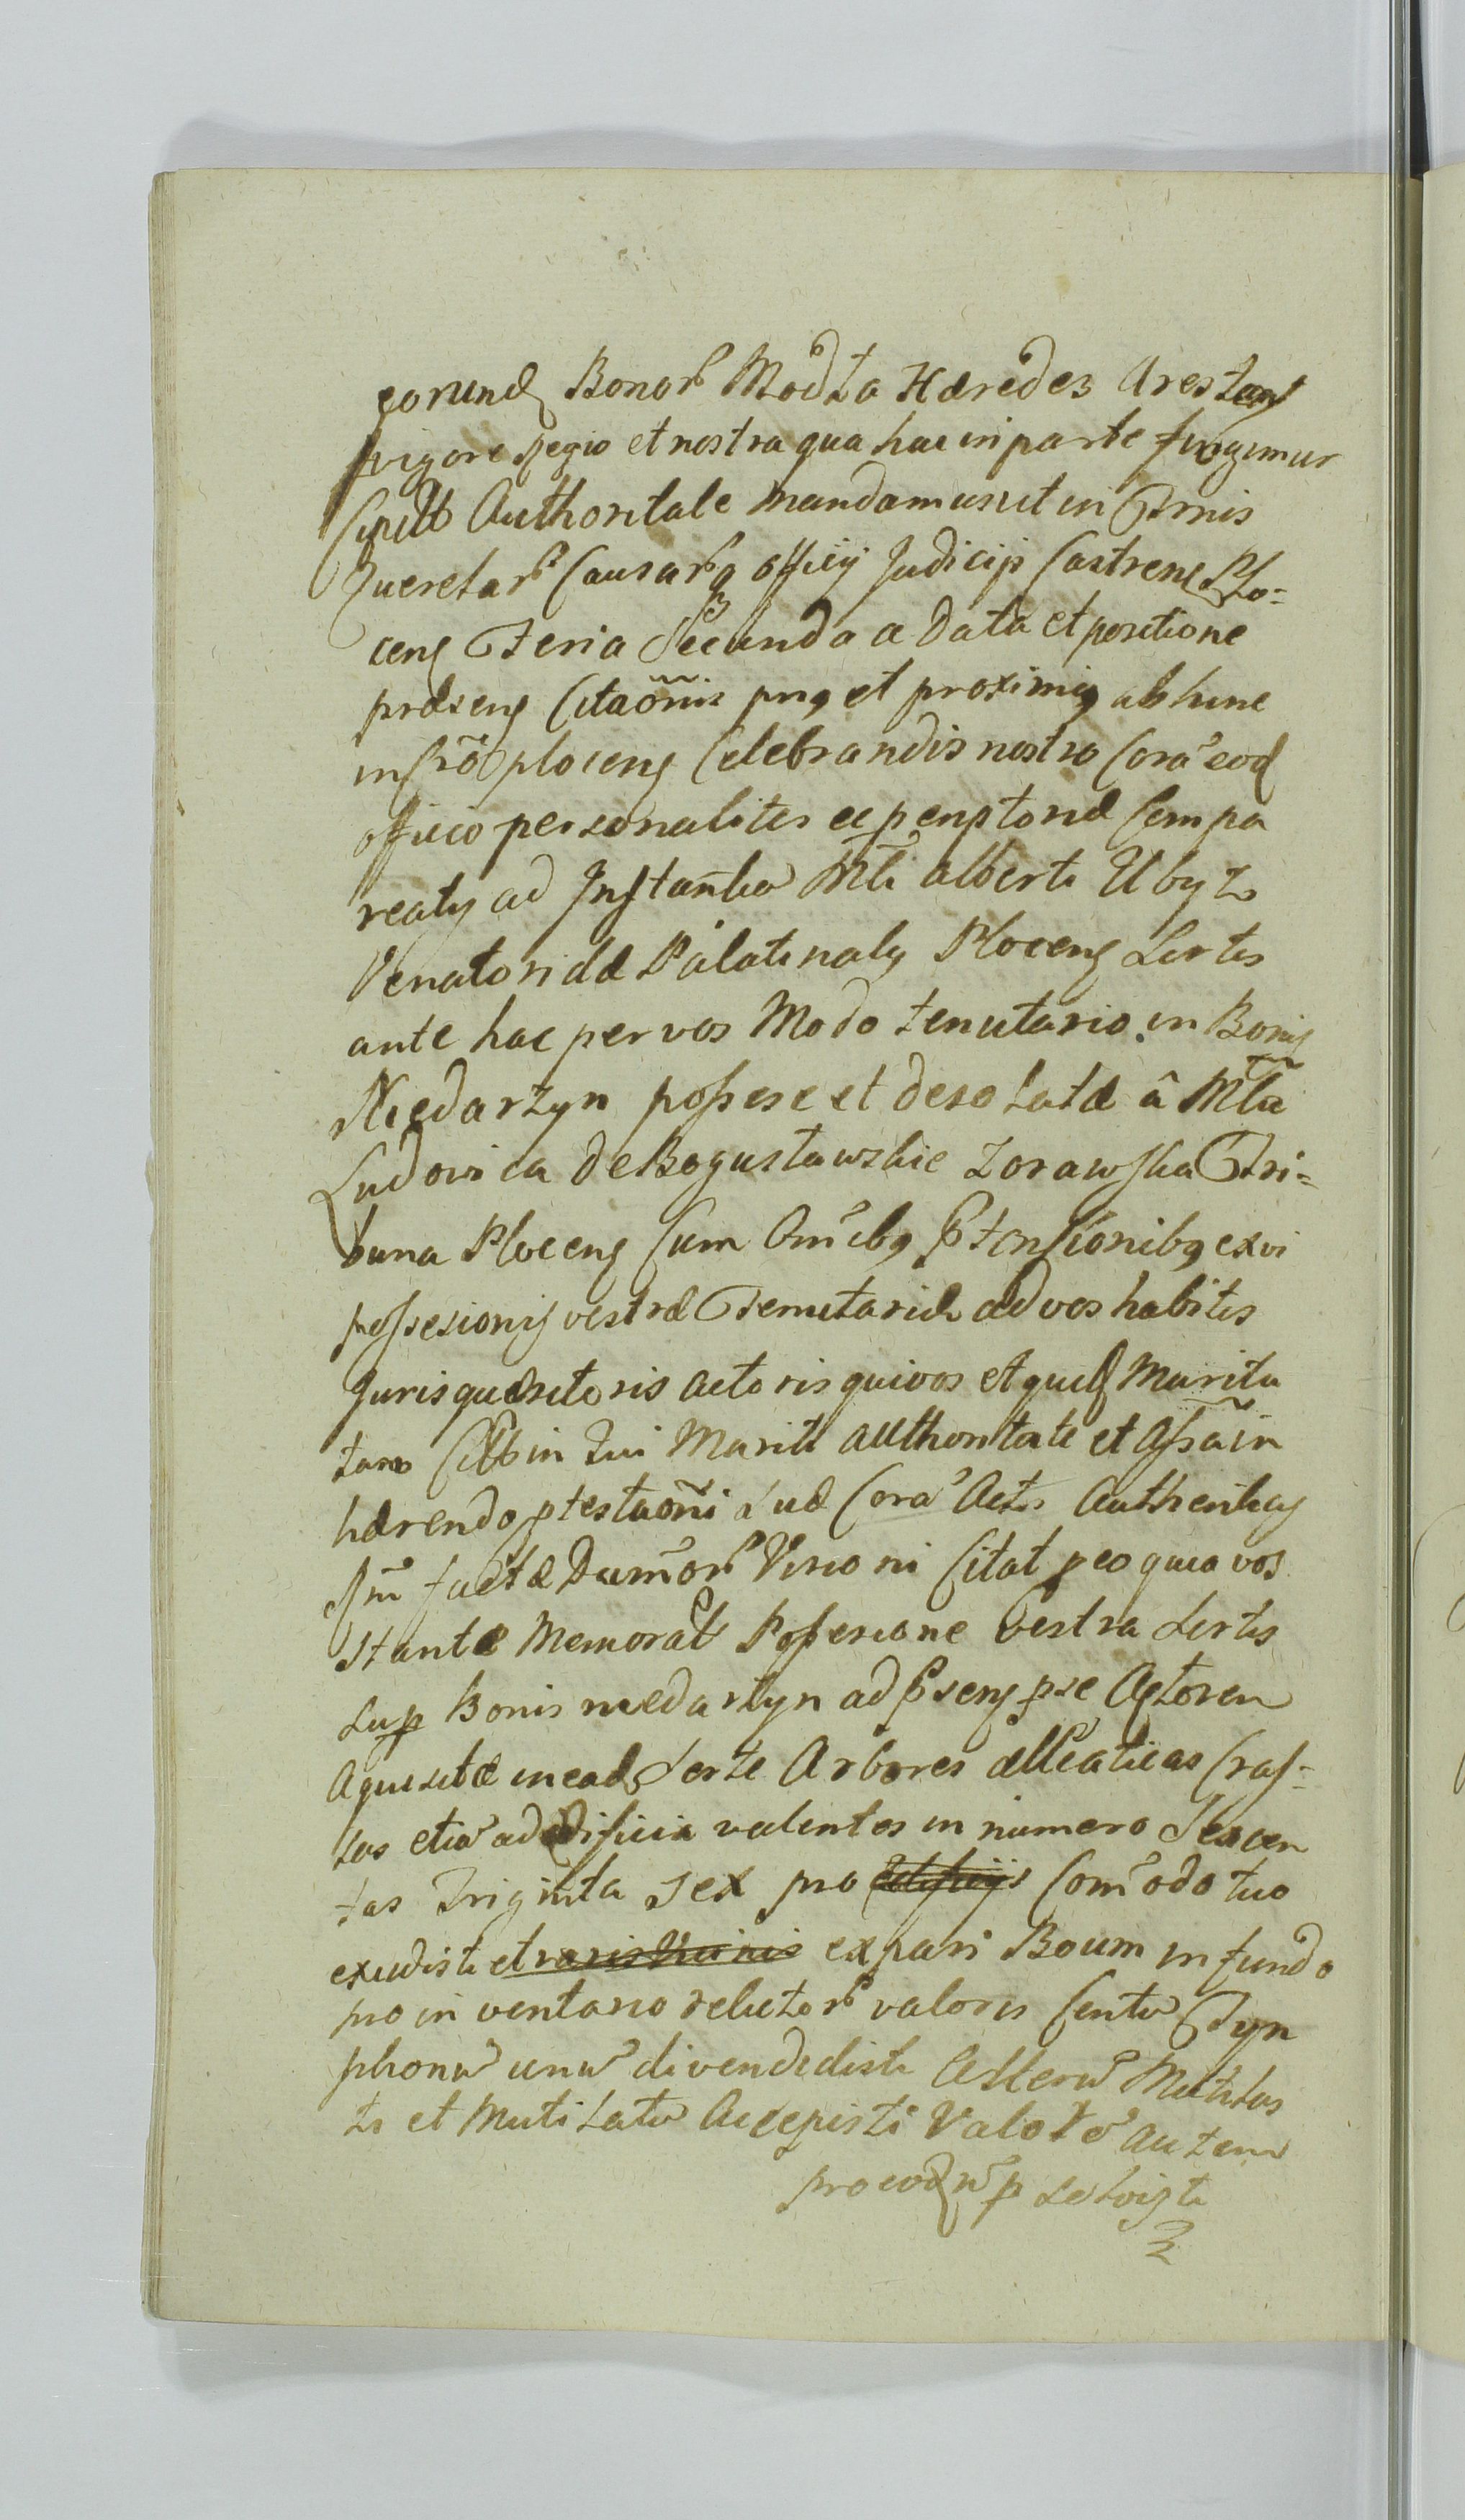 eorund Bonor Modta Hæredes Arestant
vigore Regio et nostra qua hac in parte fungimur
Capitt Authoritate mandamus ut in Trnis
Querelar Causarq officij Judicij Castrens Plo=
cens Feria Secunda a data et positione
præsens Citaõnis pnq et proximiq abhinc
in Crõ plocens Celebrandis nostro Corã eod
officio personaliter et pemptorie Compa
reatis ad Instantia Mti Alberti Ubysz
Venatoridæ Palatinals Plocens Sortis
ante hac per vos Modo tenutario in Bonis
Niedarzyn possesæ et desolatæ â Mta
Ludovica de Bogusławskie Zorawska Tri=
buna Plocens Cum Omibq ptensionibq ex vi
possesionis vestræ Tenutariæ ad vos habitis
Jurisquæsitoris actoris qui vos et quid Marita
tam in tui Mariti Authoritate et Assã in
hærendo ptestaõni suæ Corã Actis Authenticis
factæ Damor Visioni Citat p eo quia vos
stante Memorat Possesione Vestra Sortis
sup Bonis niedarzyn ad psens p se Actorem
Aquisitæ in ead Sorte Arbores allicaticas Cras=
sas etia ad ædificia valentes in numero Sexcen
tas Triginta sex pro ædificijs Comodo tuo
excidisti et expari Boum in fundo
pro in ventario relictor valoris Centu Tyn
phonu unu divendidisti Alteru Mutilas
ti et Mutilatu Accepisti Valore autem
pro eodu p solvisti